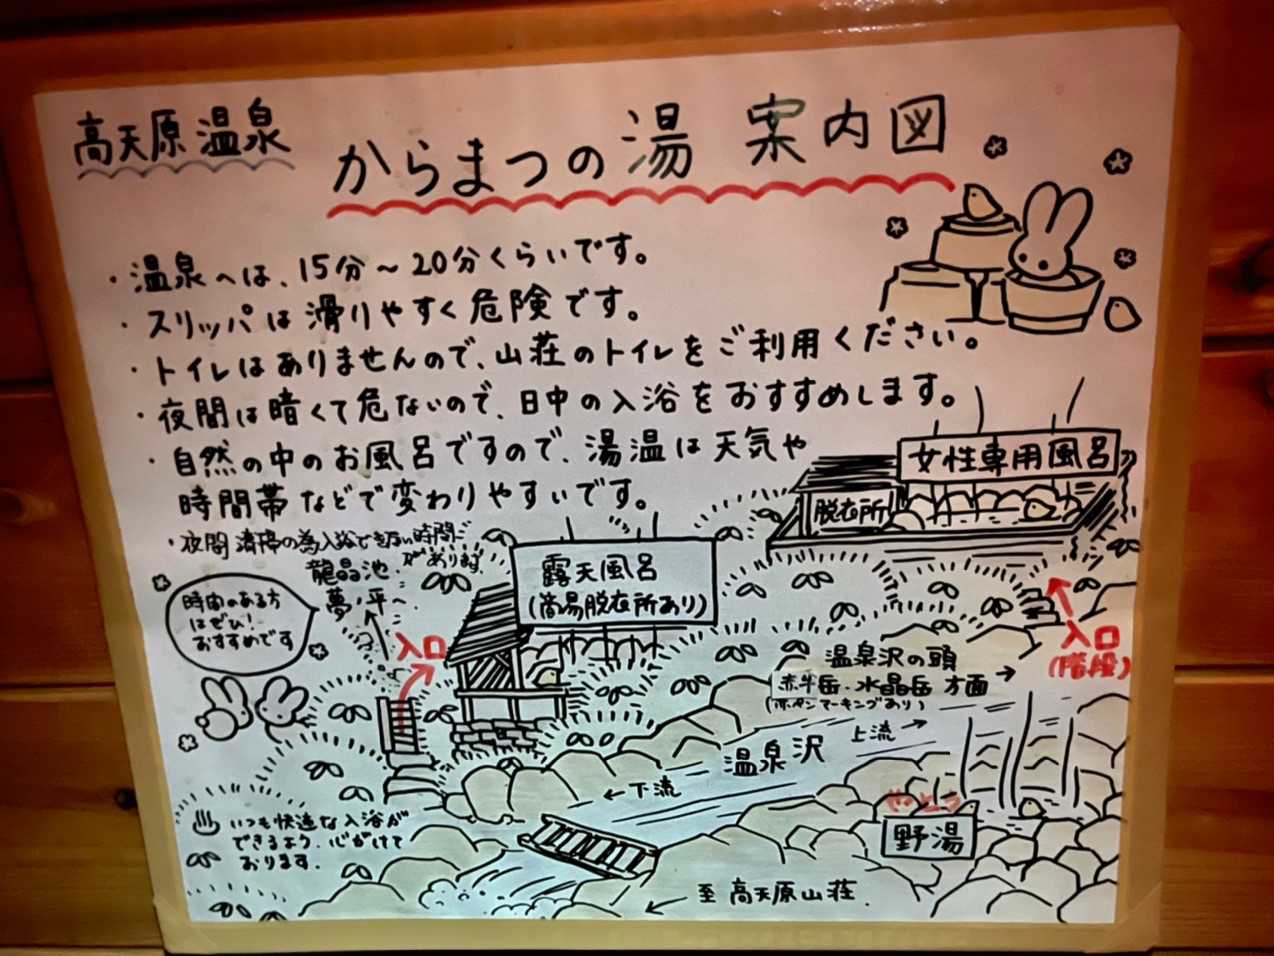 高天原温泉
からまつの湯 案内図
・温泉へは、15分～20分くらいです。
・スリッパは滑りやすく危険です。
・トイレはありませんので、山荘のトイレをご利用ください。
・夜間は暗くて危ないので、日中の入浴をおすすめします。
・自然の中のお風呂ですので、湯温は天気や
時間帯などで変わりやすいです。
・夜間 清掃の為入浴できない時間
があります
女性専用風呂
脱衣所
入口
(階段)
龍晶池
夢ノ平へ
時間のある方
はぜひ!
おすすめです
入口
露天風呂
(簡易脱衣所あり)
温泉沢の頭
赤牛岳・水晶岳 方面→
(赤ペンマーキングあり)
上流→
温泉沢
←下流
やとう
野湯
♨いつも快適な入浴が
できるよう、心がけて
おります。
← 至 高天原山荘